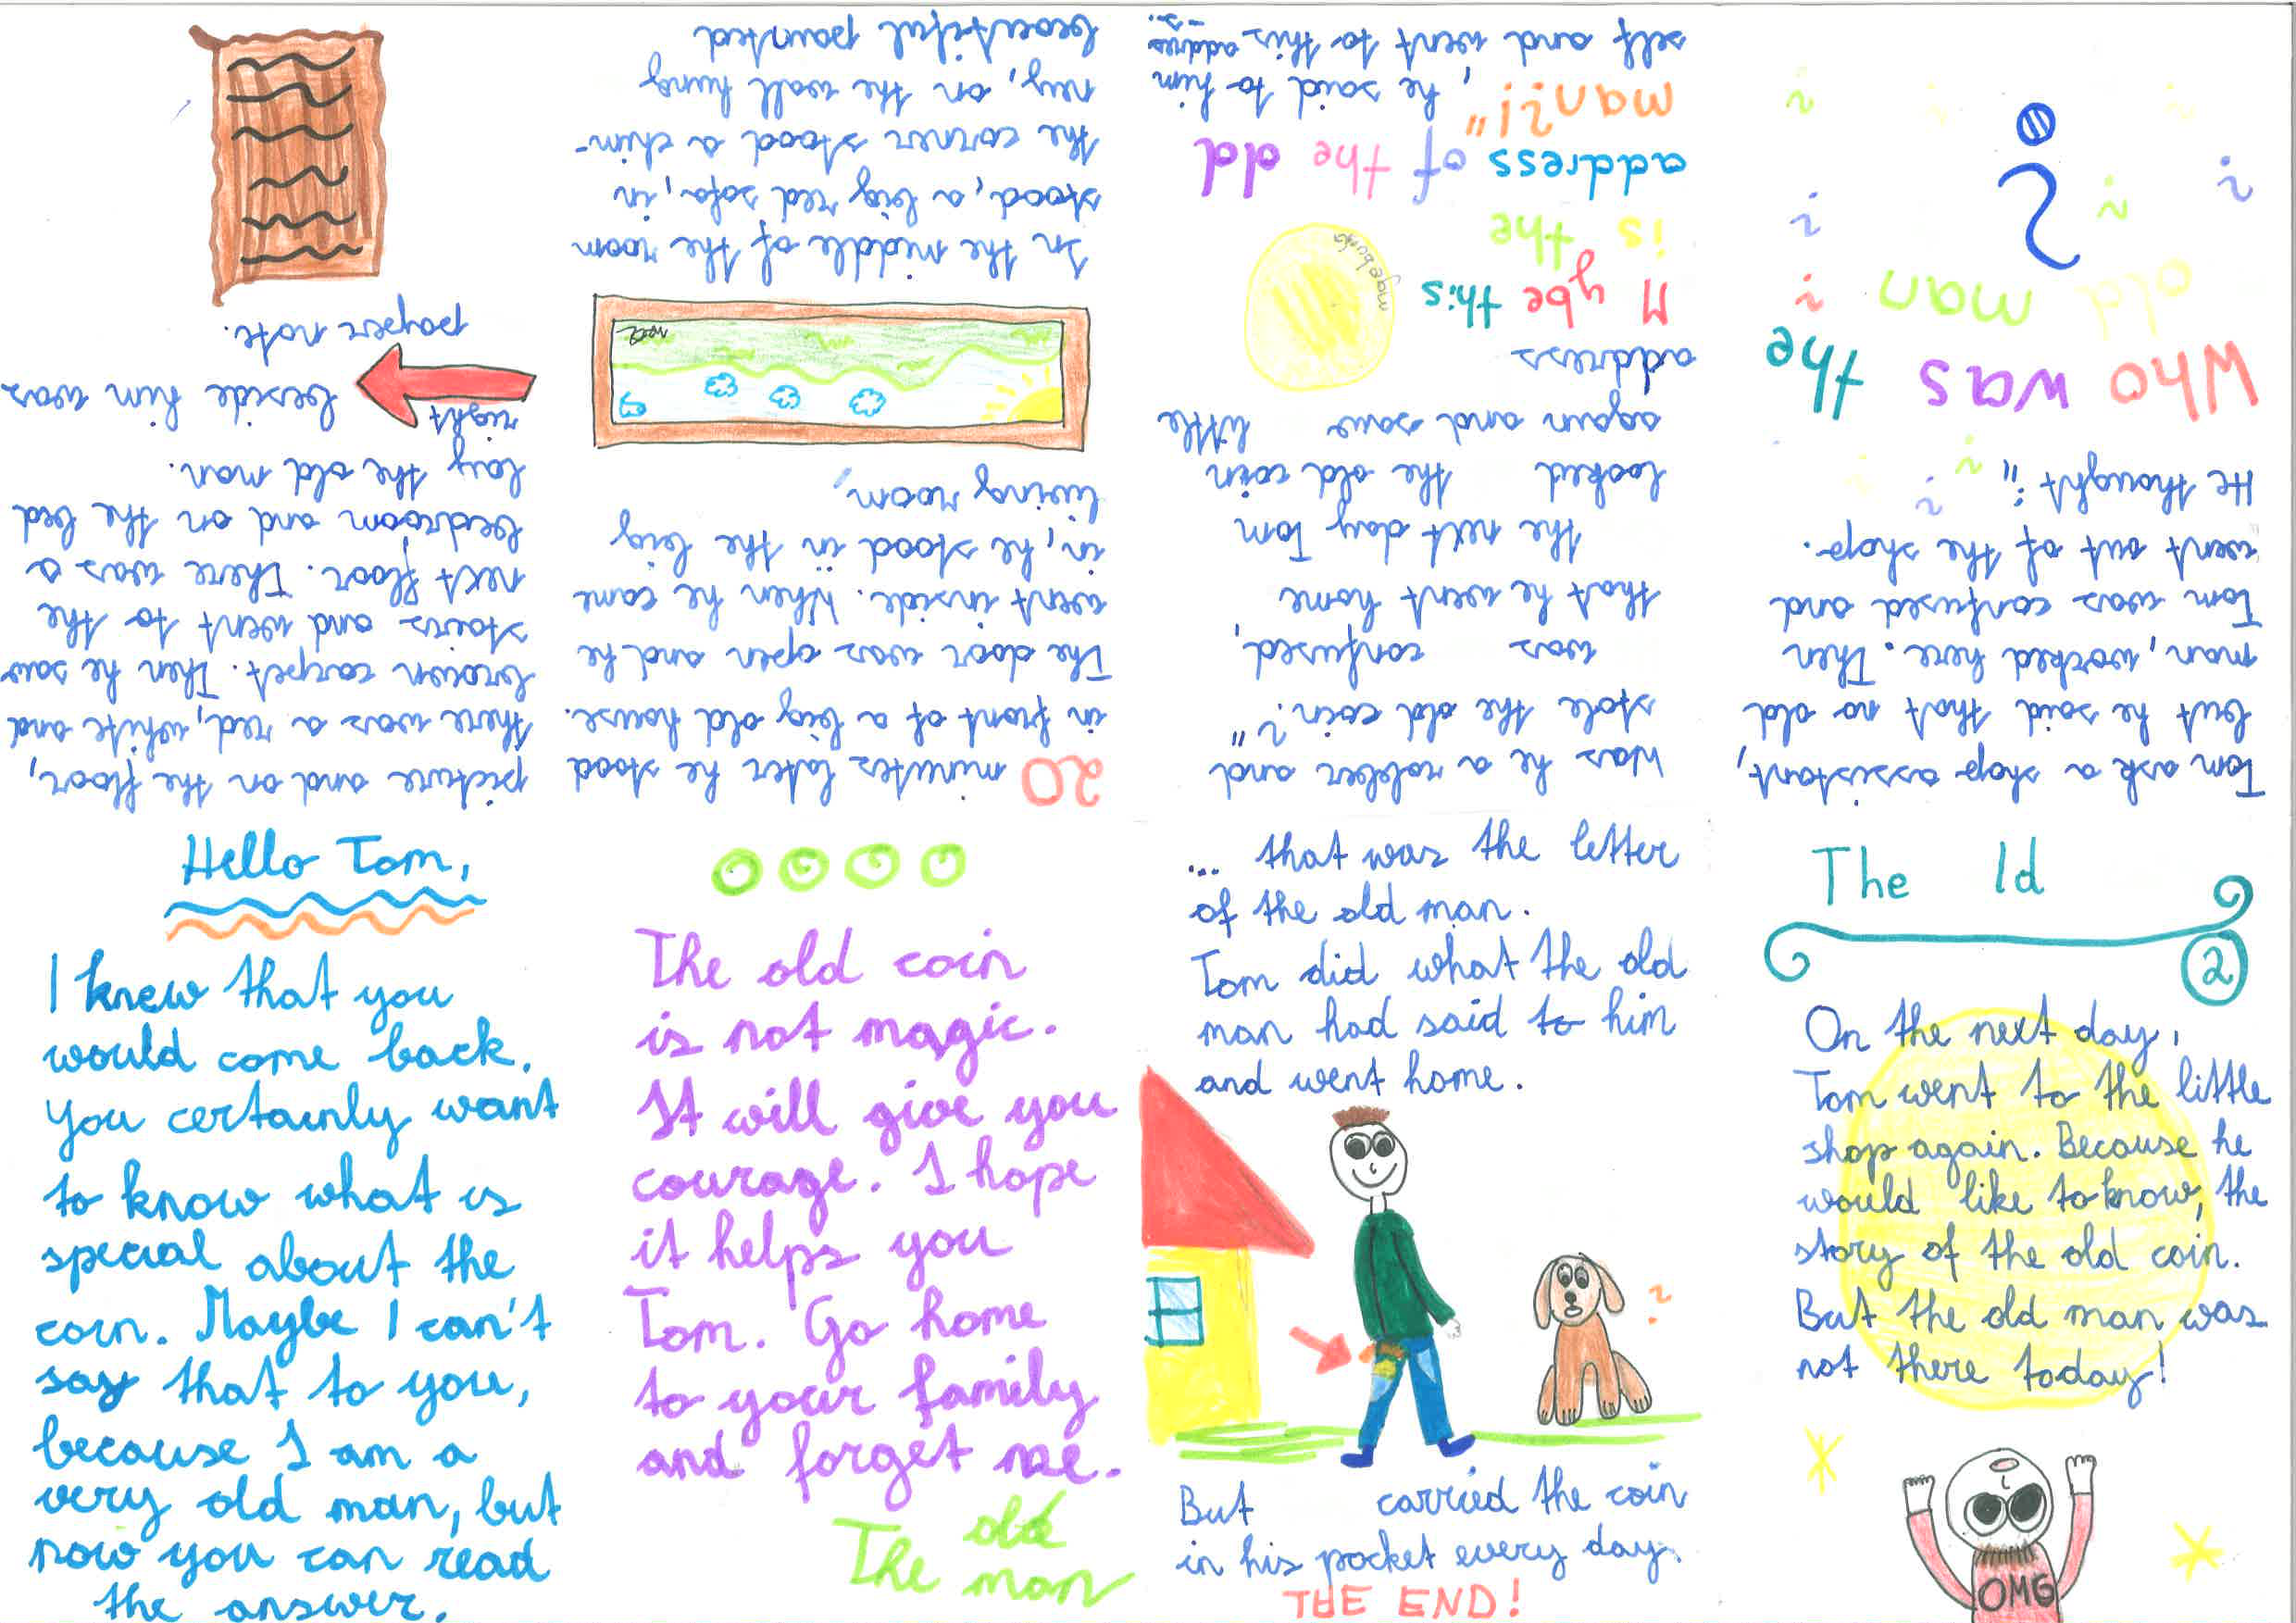 The ld
2
On the next day,
Tom went to the little
shop again. Because he
would like to know, the
story of the old coin.
But the old man was
not there today!
OMG
Tom ask a shop assistant,
but he said that no old
man, worked here. Then
Tom was confused and
went out of the shop.
He thought „
Who was the
old man
?
Was he a robber and
stole the old coin?"
was confused,
that he went home
the next day Tom
looked the old coin
again and saw little
address
M ybe this
is the
address of the old
man?!", he said to him
self and went to this address..
20 minutes later he stood
in front of a big old house.
The door was open and he
went inside. When he came
in, he stood in the big
living room,
In the middle of the room
stood, a big red sofa, in
the corner stood a chim-
ney, on the wall hung
beautiful painted
picture and on the floor,
there was a red, white and
brown carpet. Then he saw
stairs and went to the
next floor. There was a
bedroom and on the bed
lay the old man.
right beside him was
paper note.
Hello Tom,
I knew that you
would come back.
You certainly want
to know what is
special about the
coin. Maybe I can't
say that to you,
because I am a
very old man, but
now you can read
the answer.
The old coin
is not magic.
It will give you
courage. I hope
it helps you
Tom. Go home
to your family
and forget me.
The old man
... that was the letter
of the old man.
Tom did what the old
man had said to him
and went home.
?
But carried the coin
in his pocket every day.
THE END!